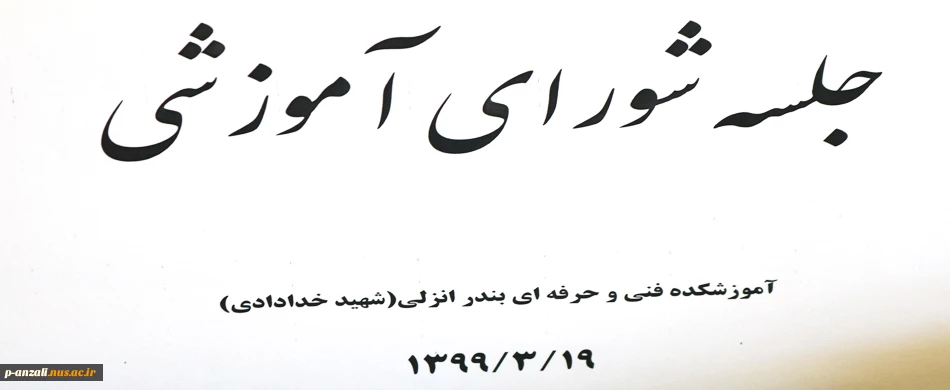 جلسه شورای آموزشی
آموزشکده فنی و حرفه ای بندر انزلی(شهید خدادادی)
۱۳۹۹/۳/۱۹
p-anzali.nus.ac.ir